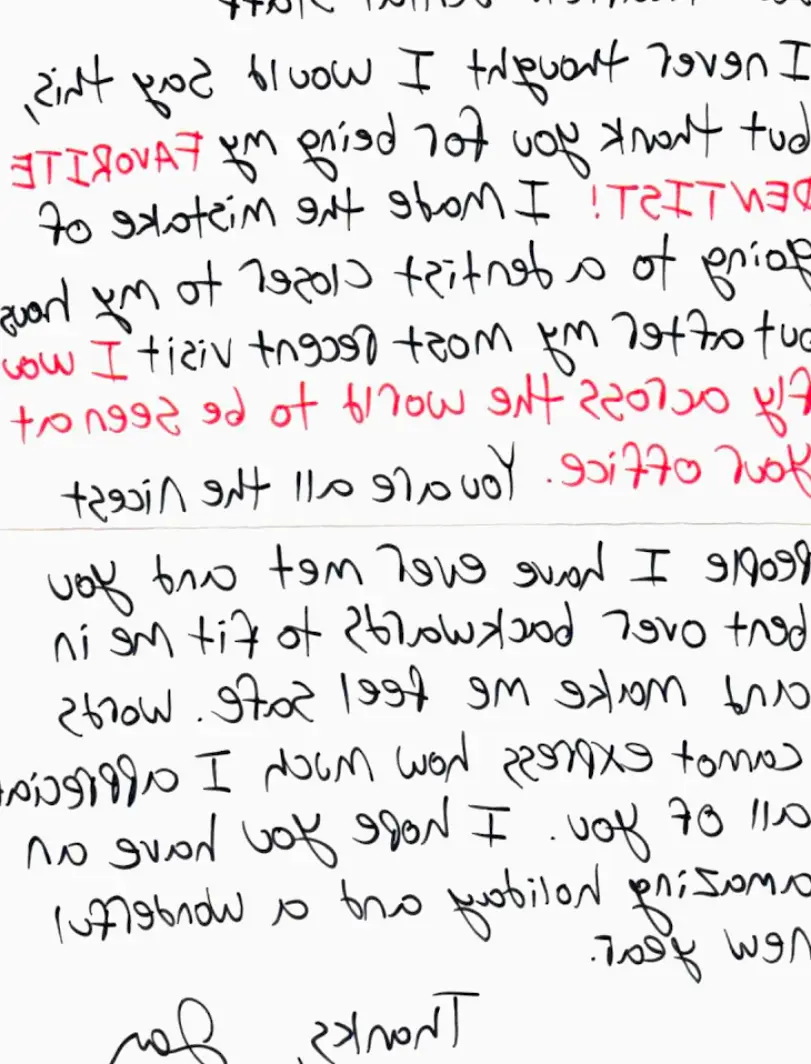 I never thought I would say this,
but thank you for being my FAVORITE
DENTIST! I made the mistake of
going to a dentist closer to my hous
but after my most recent visit I wou
fly across the world to be seen at
your office. You are all the nicest
people I have ever met and you
bent over backwards to fit me in
and make me feel safe. Words
cannot express how much I appreciat
all of you. I hope you have an
amazing holiday and a wonderful
new year.
Thanks,